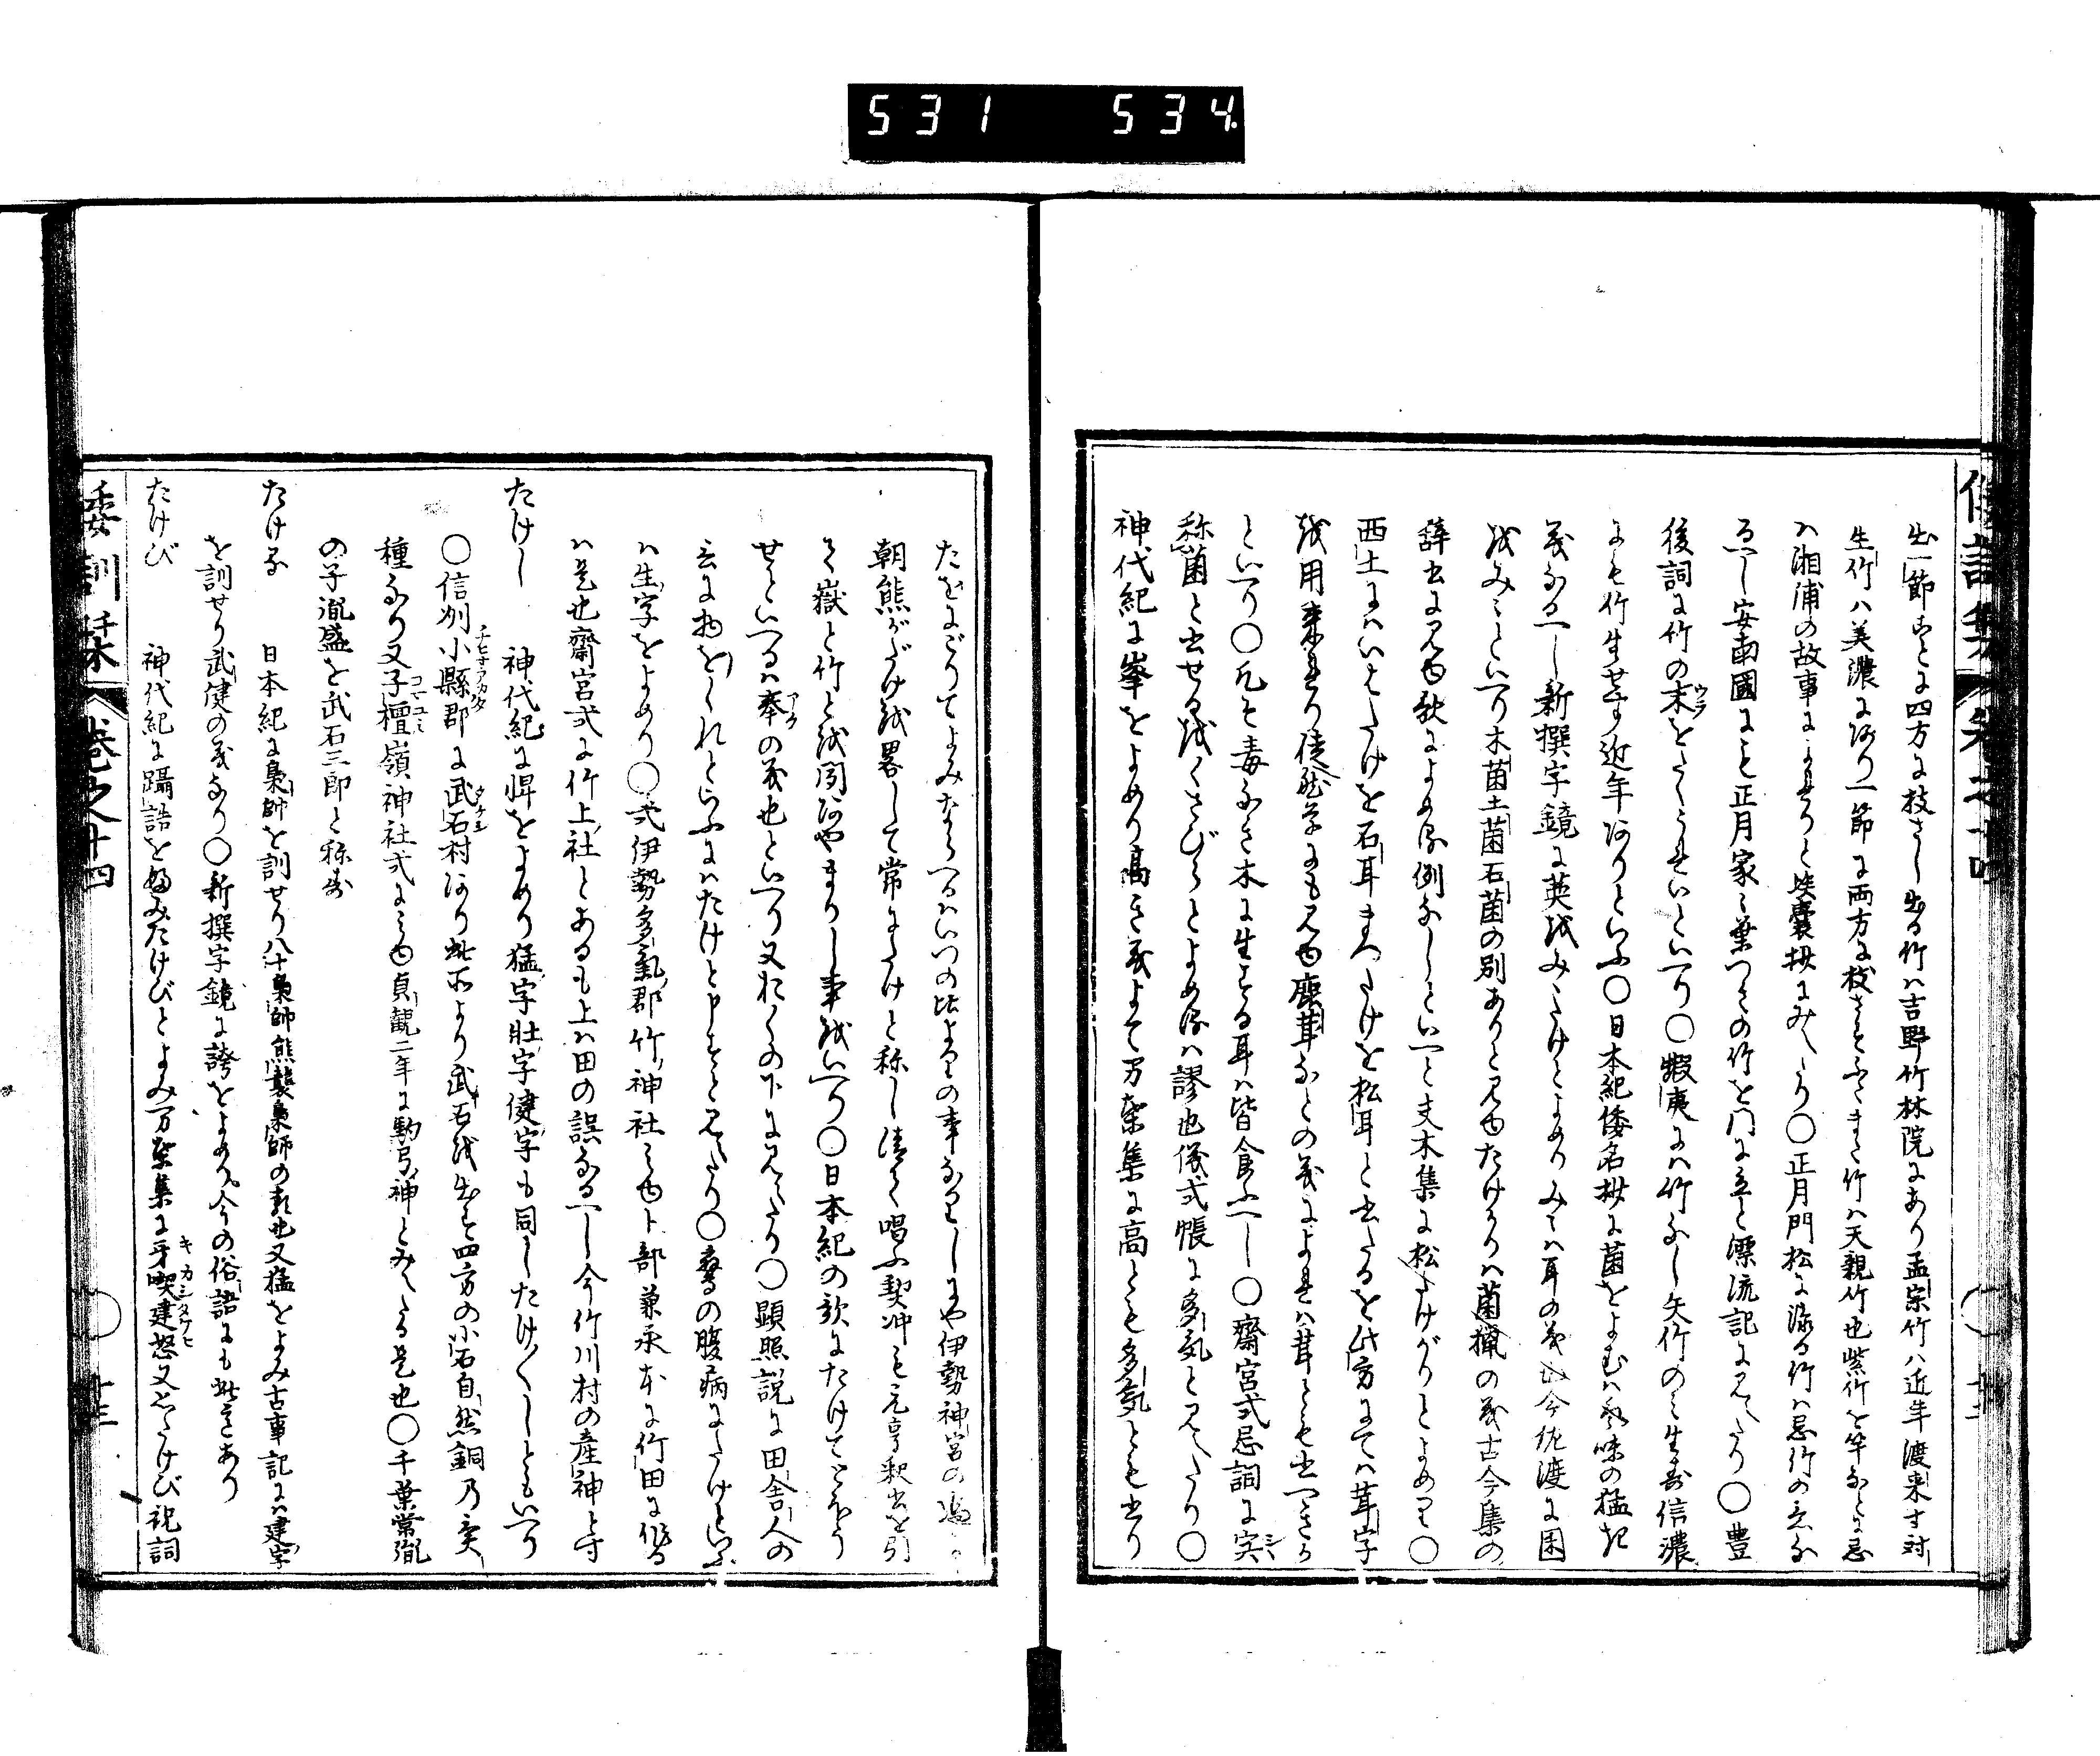 531 534
出一節ことに四方に枝さし出る竹ハ吉野竹林院にあり孟宗竹ハ近年渡来す対
生竹ハ美濃にあり一節に両方に枝さすふたまた竹ハ天親竹也紫竹を竿なとに忌
ハ湘浦の故事によれりと壒嚢抄にみえたり〇正月門松に添る竹ハ忌竹の意な
るへし安南國にも正月家々葉つきの竹を门に立と漂流記に見えたり〇豊
後詞に竹の末をうらせいといへり〇蝦夷にハ竹なし矢竹のミ生す信濃
にも竹生せす近年ありといふ〇日本紀倭名抄に菌をよむハ氣味の猛き
義なるへし新撰字鏡に英をみゝたけとよめりみゝハ耳の義也今佐渡に国
をみゝといへり木菌土菌石菌の別ありと見ゆたけかりハ菌猟の義古今集の
辞书に見ゆ秋によめる例なしといへと夫木集に松たけがりとよめり〇
西土にハいはたけを石耳まつたけを松耳と书たるを此方にてハ茸字
を用来れり徒然草にも見ゆ鹿茸なとの義によれハ茸とも书へきか
といへり〇凡そ毒なき木に生する耳ハ皆食ふへし〇齋宮式忌詞に宍
称菌と书せるをくさびらとよめるハ謬也儀式帳に多気と見えたり〇
神代紀に峯をよめり高き義よて万葉集に高とも多気とも书り
倭訓栞 巻之十四
たをにごりてよみならへるハいつの比よりの事なりしにや伊勢神宮の
朝熊がだけを畧して常にたけと称し清て唱ふ契冲も元亨釈书を引
て嶽と竹とを聞あやまりし事をいへり〇日本紀の歌にたけてごほう
せといへるハ奉の義也といへり又おくの下に見えたり〇顕照説に田舎人の
言に物をくれといふにハたけと申すと見えたり〇鷹の腹病にたけといふ
ハ生字をよめり〇式伊勢多氣郡竹神社ミゆ卜部兼承本に竹田に作る
ハ是也齋宮式に竹上社とあるも上ハ田の誤なるへし今竹川村の産神とす
たけし 神代紀に悍をよめり猛字壮字健字も同したけ〳〵しともいへり
〇信州小縣郡に武石村あり此所より武石を出す四方の小石自然銅乃実
種なり又子檀嶺神社式にミゆ貞観二年に駒弓神とみえたる是也〇千葉常胤
の子胤盛を武石三郎と称す
たける 日本紀に梟帥を訓せり八十梟帥熊襲梟帥の類也又猛をよみ古事記にハ建字
を訓せり武健の義なり〇新撰字鏡に誇をよめり今の俗語にも此意あり
たけび 神代紀に躡誥をふみたけびとよみ万葉集に牙喫建怒又をたけび祝詞
倭訓栞 巻之十四 十三